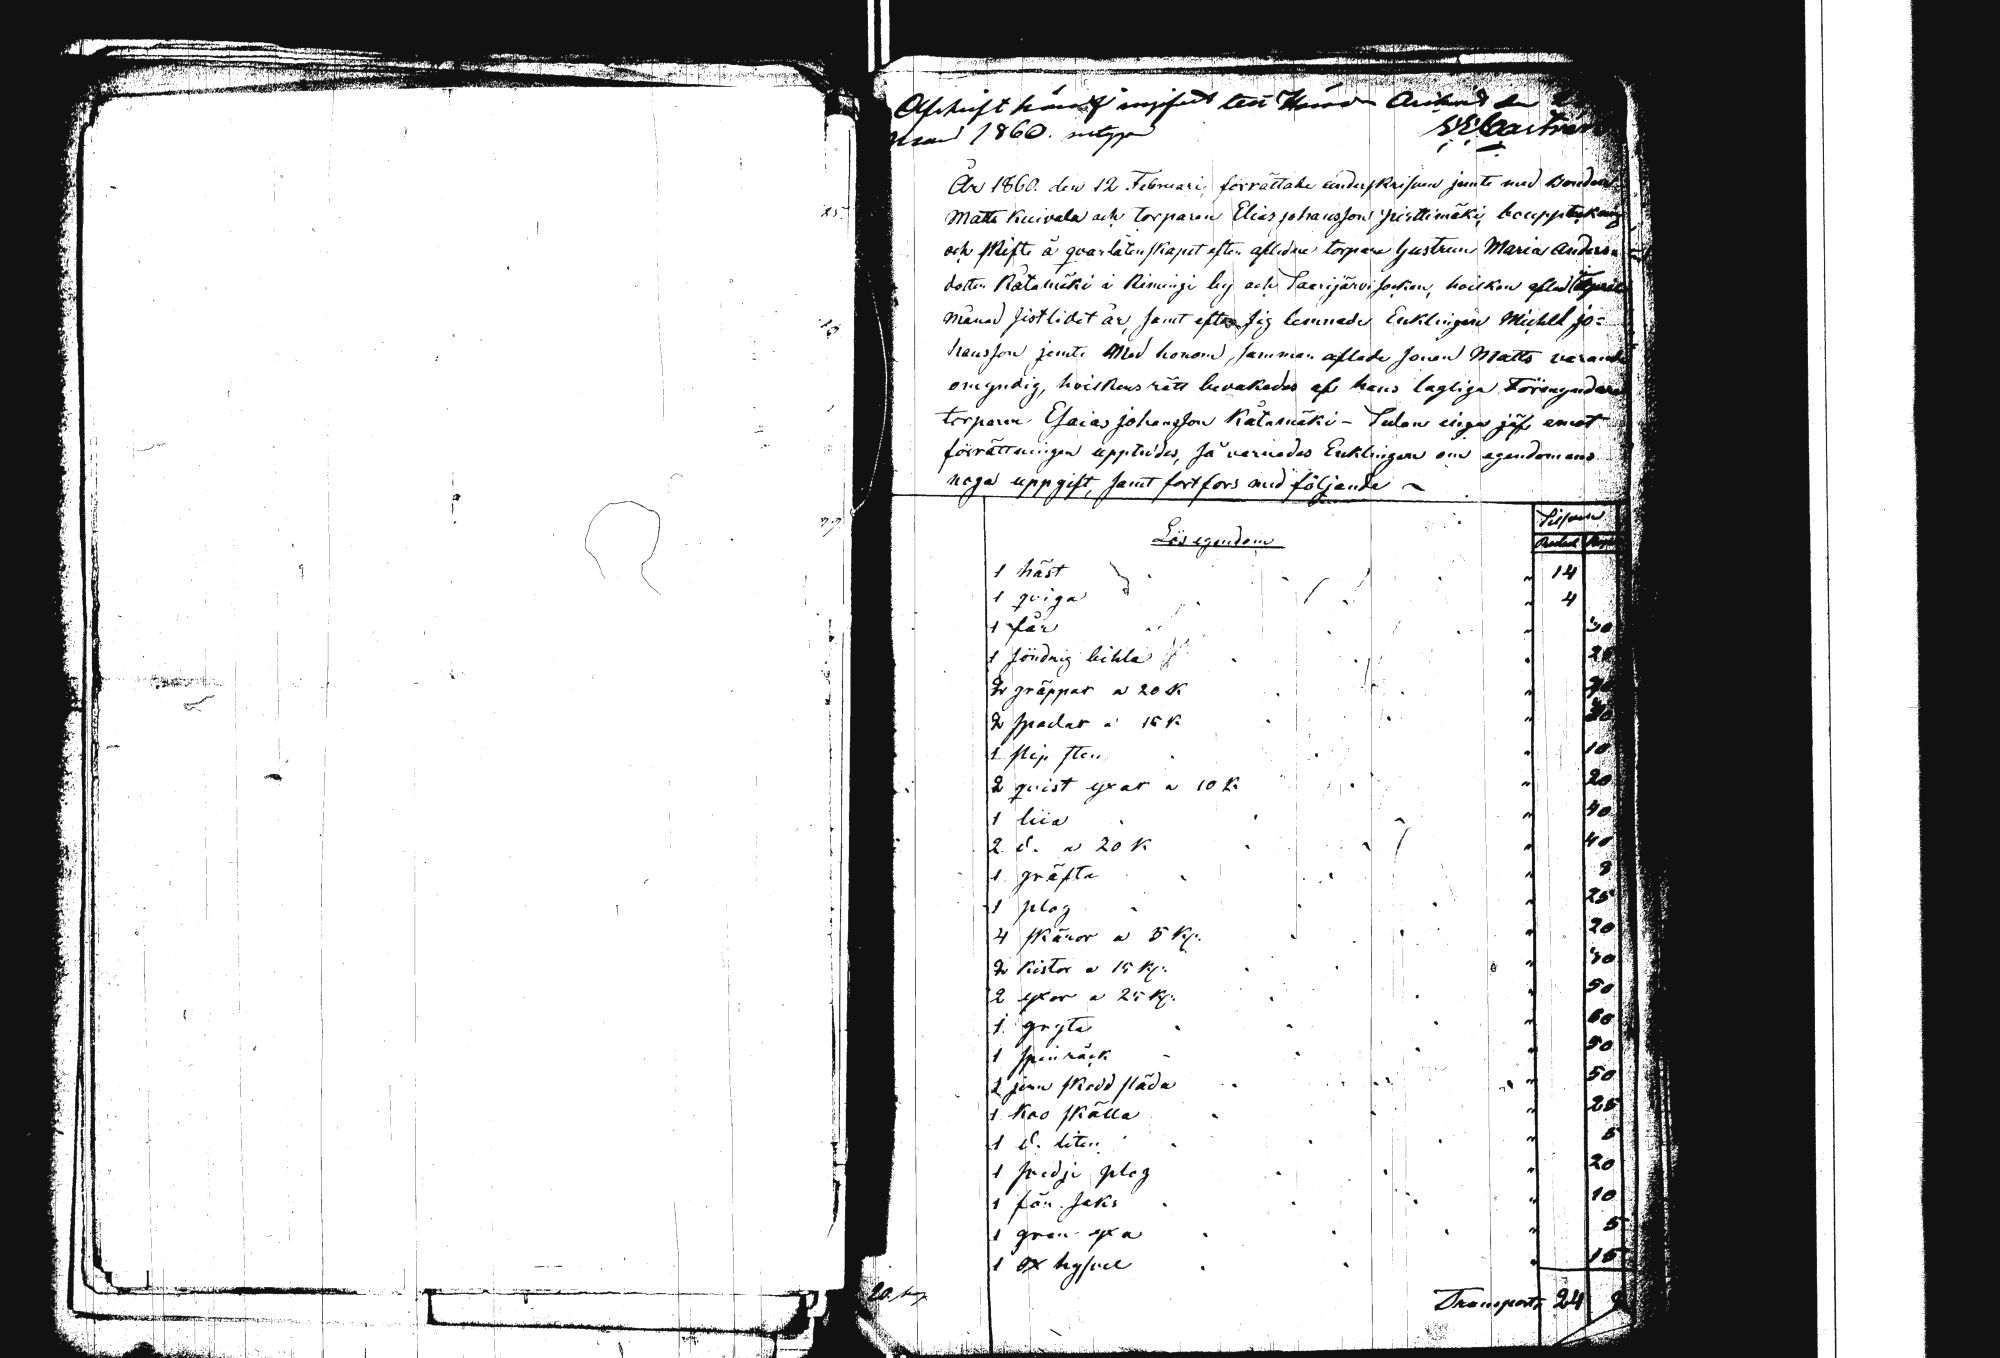 Afskrift häraf ingifvet till Härads Archivet den
1860. intygar E. E. Castrén
År 1860. den 12 Februari, förrättade underskrifven jemte med Bonden
Matts Kuivala och torparen Elias Johansson Pirttimäki, bouppteckning
och skifte å qvarlåtenskapet efter aflidne torpare hustrun Maria Anders-
dotter Kätamäki i Remingi by och Saarijärvi Socken, hvilken afled April
månad sistlidet år, samt efter sig lemnade Enklingen Michel Jo-
hansson jemte Med honom samman aflade Sonen Matts varande
omyndig, hvilkens rätt bevakades af hans lagliga Förmyndare
torparen Esaias Johansson Kätamäki – Sedan inga jäf emot
förrättningen upptedes, så varnades Enklingen om egendomens
noga uppgift, samt fortfors med följande ~
Lös egendom
Silfver
Rubel Kop
1 häst " 14
1 qviga " 4
1 får " 30
1 söndrig bihla "
2 gräppar a 20 K "
2 spadar a 15 K " 30
1 slip sten " 10
2 qvist yxar a 10 K " 20
1 liia " 40
2 d. a 20 K " 40
1 gräfta " 8
1 plog " 25
4 skäror a 5 Kp. " 20
2 kistor a 15 Kp. " 30
2 yxor a 25 Kp. " 50
1 gryta " 60
1 spinråck " 50
1 jern skodd släda " 50
1 Koo skälla " 25
1 d. liten " 5
1 svedje plog " 20
1 får saks " 10
1 gran yxa " 5
1 ox hysvel " 15
Transport 24